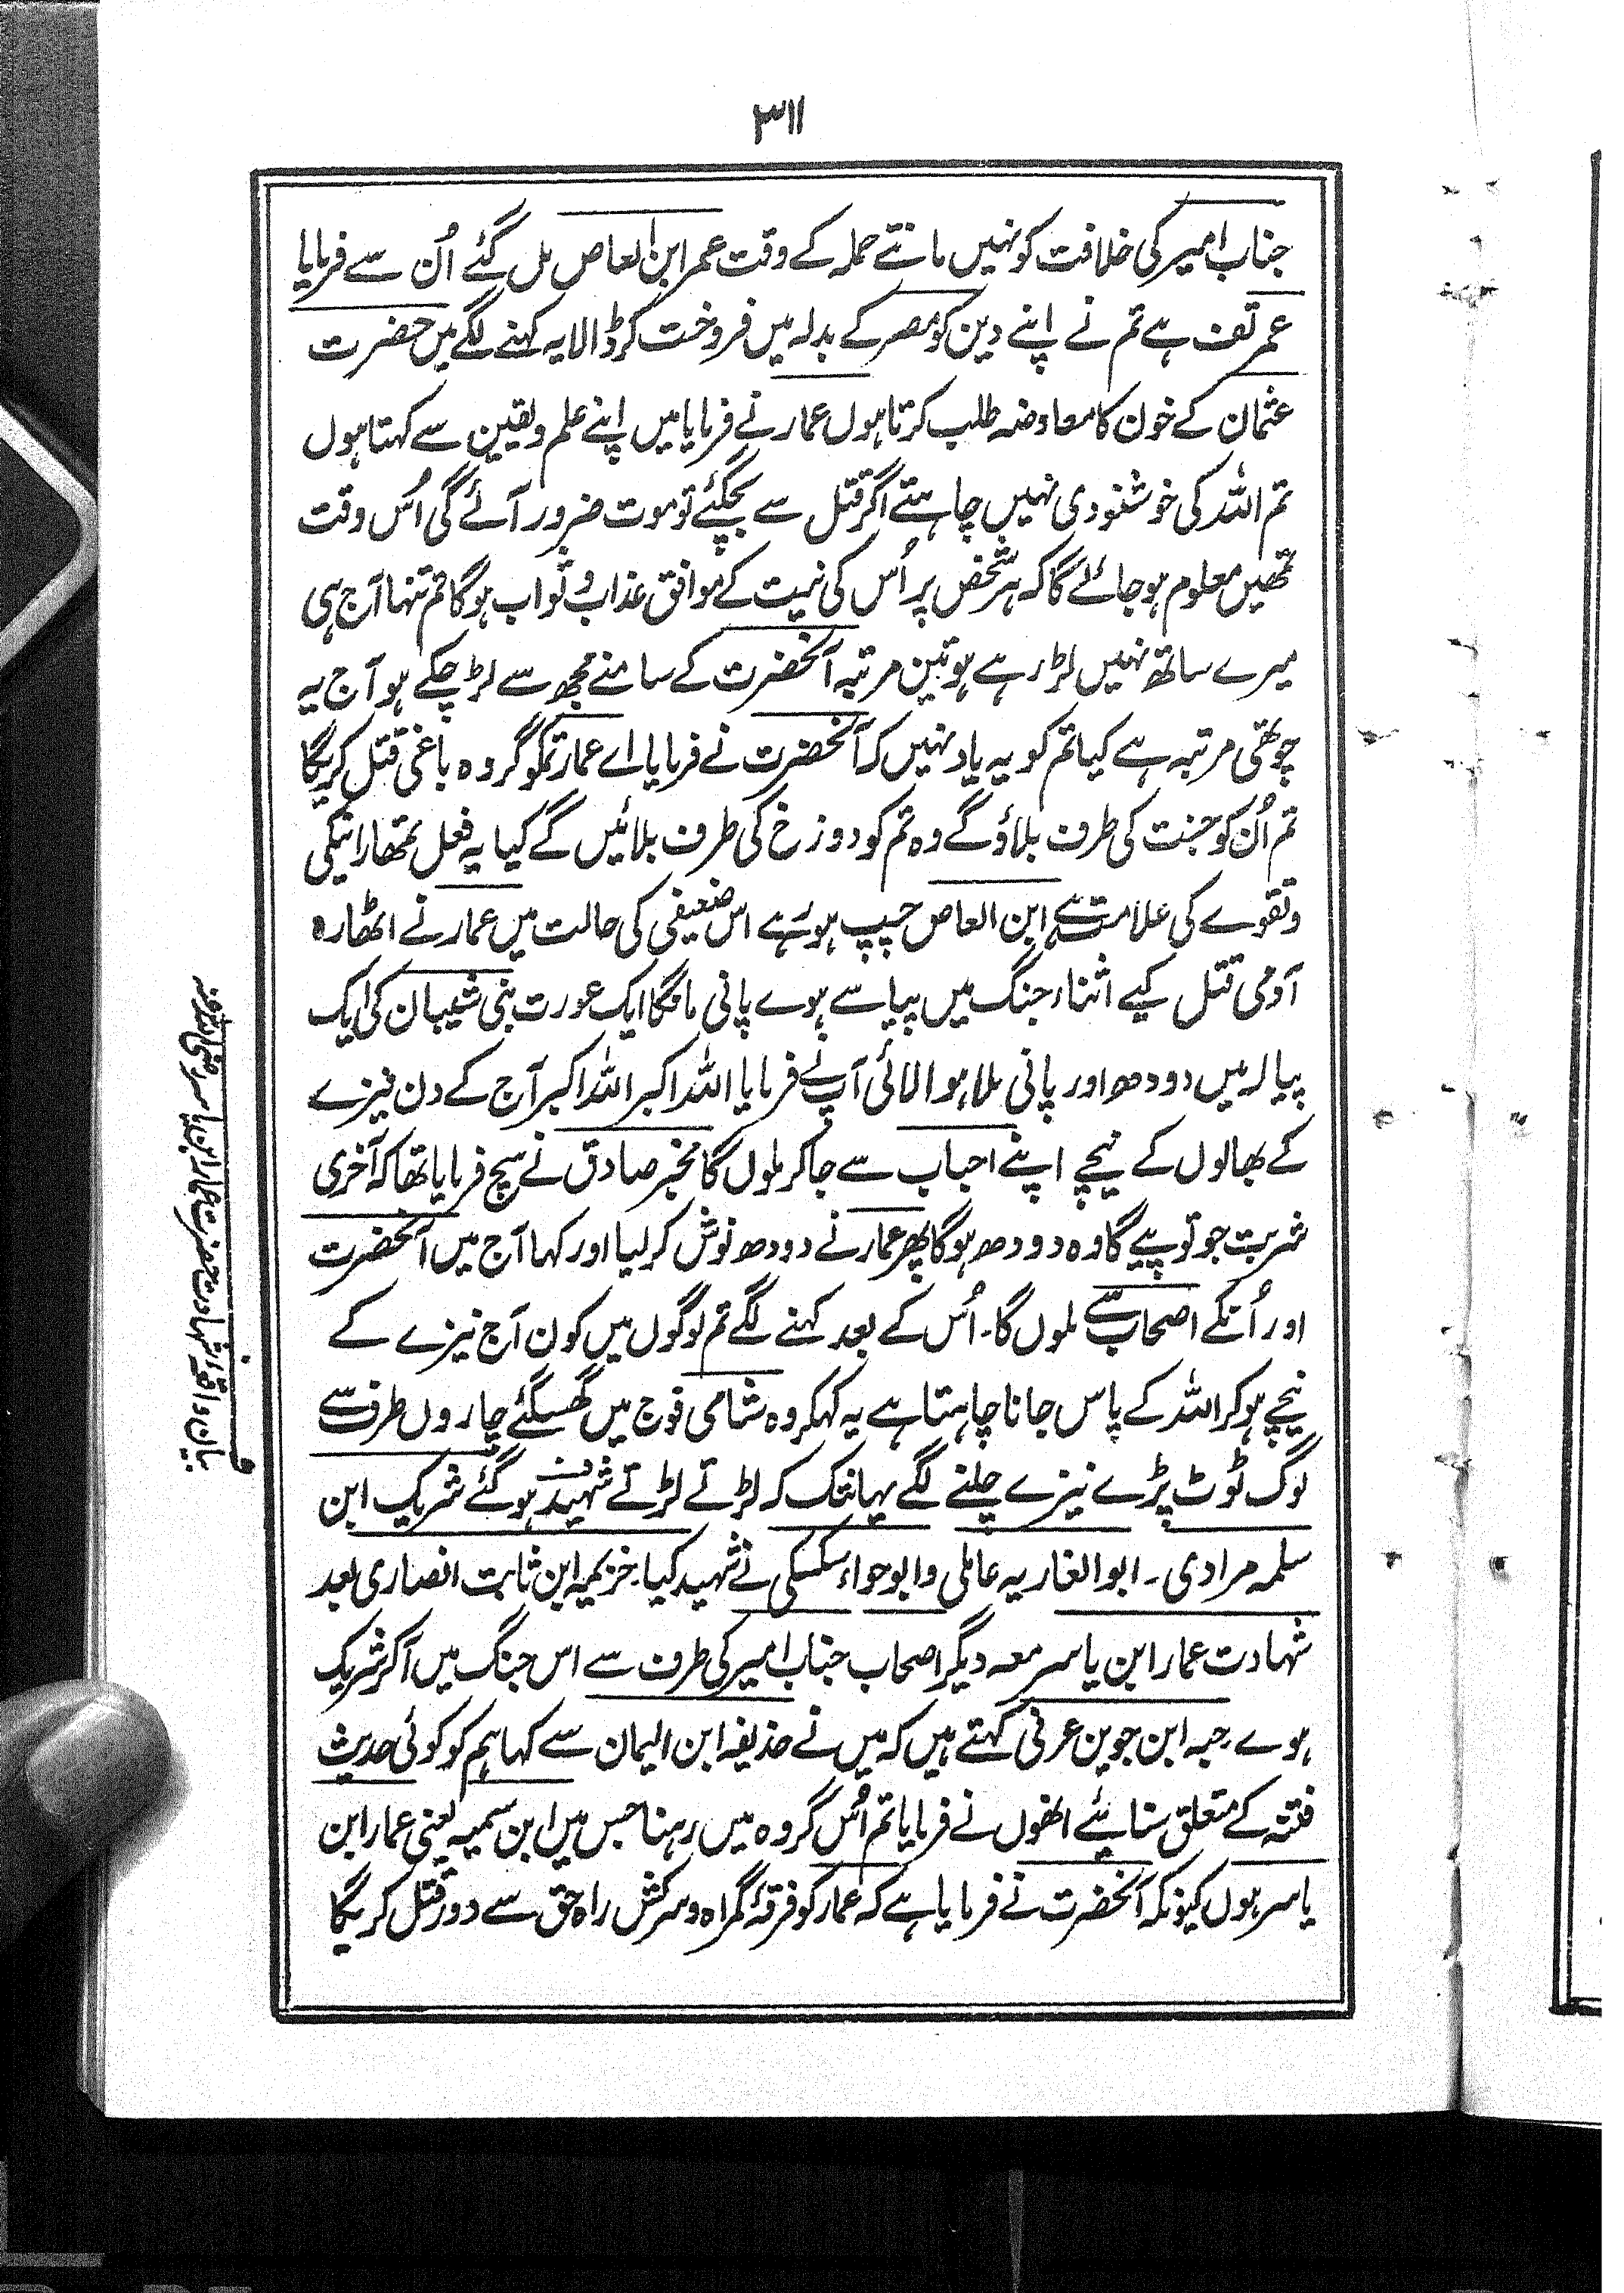 ۳۱۱
جناب امیر کی خلافت کو نہیں مانتے حملہ کے وقت عمر ابن العاص مل گئے اُن سے فرمایا
عمر تف ہے تم نے اپنے دین کو مصر کے بدلہ میں فروخت کر ڈالا یہ کہنے لگے میں حضرت
عثمان کے خون کا معاوضہ طلب کرتا ہوں عمار نے فرمایا میں اپنے علم و یقین سے کہتا ہوں
تم اللہ کی خوشنودی نہیں چاہتے اگر قتل سے بچگئے تو موت ضرور آئے گی اُس وقت
تمھیں معلوم ہو جائے گا کہ ہر شخص پر اُس کی نیت کے موافق عذاب و ثواب ہو گا تم تنہا آج ہی
میرے ساتھ نہیں لڑ رہے ہو تین مرتبہ آنحضرت کے سامنے مجھ سے لڑ چکے ہو آج یہ
چوتھی مرتبہ ہے کیا تم کو یہ یاد نہیں کہ آنحضرت نے فرمایا اے عمار تمکو گروہ باغی قتل کریگا
تم اُن کو جنت کی طرف بلاؤ گے وہ تم کو دوزخ کی طرف بلائیں گے کیا یہ فعل تمھارا نیکی
و تقوے کی علامت ہے ابن العاص چپ ہو رہے اس ضعیفی کی حالت میں عمار نے اٹھارہ
آدمی قتل کیے اثناء جنگ میں پیاسے ہوے پانی مانگا ایک عورت بنی شیبان کی ایک
پیالہ میں دودھ اور پانی ملا ہوا لائی آپ نے فرمایا اللہ اکبر اللہ اکبر آج کے دن نیزے
کے بھالوں کے نیچے اپنے احباب سے جا کر ملوں گا مخبر صادق نے سچ فرمایا تھا کہ آخری
شربت جو تو پیے گا وہ دودھ ہو گا پھر عمار نے دودھ نوش کر لیا اور کہا آج میں آنحضرت
اور اُنکے اصحاب سے ملوں گا۔ اُس کے بعد کہنے لگے تم لوگوں میں کون آج نیزے کے
نیچے ہو کر اللہ کے پاس جانا چاہتا ہے یہ کہکر وہ شامی فوج میں گھسگئے چاروں طرف سے
لوگ ٹوٹ پڑے نیزے چلنے لگے یہانتک کہ لڑتے لڑتے شہید ہو گئے شریک ابن
سلمہ مرادی۔ ابو الغاریہ عاملی و ابو حواء سکسکی نے شہید کیا۔ خزیمہ ابن ثابت انصاری بعد
شہادت عمار ابن یاسر معہ دیگر اصحاب جناب امیر کی طرف سے اس جنگ میں آ کر شریک
ہوے۔ حبہ ابن جوین عرنی کہتے ہیں کہ میں نے حذیفہ ابن الیمان سے کہا ہم کو کوئی حدیث
فتنہ کے متعلق سنائیے انھوں نے فرمایا تم اُس گروہ میں رہنا جس میں ابن سمیہ یعنی عمار ابن
یاسر ہوں کیونکہ آنحضرت نے فرمایا ہے کہ عمار کو فرقۂ گمراہ و سرکش راہ حق سے دور قتل کریگا
بیان واقعۂ شہادت حضرت عمار ابن یاسر رضی اللہ عنہ